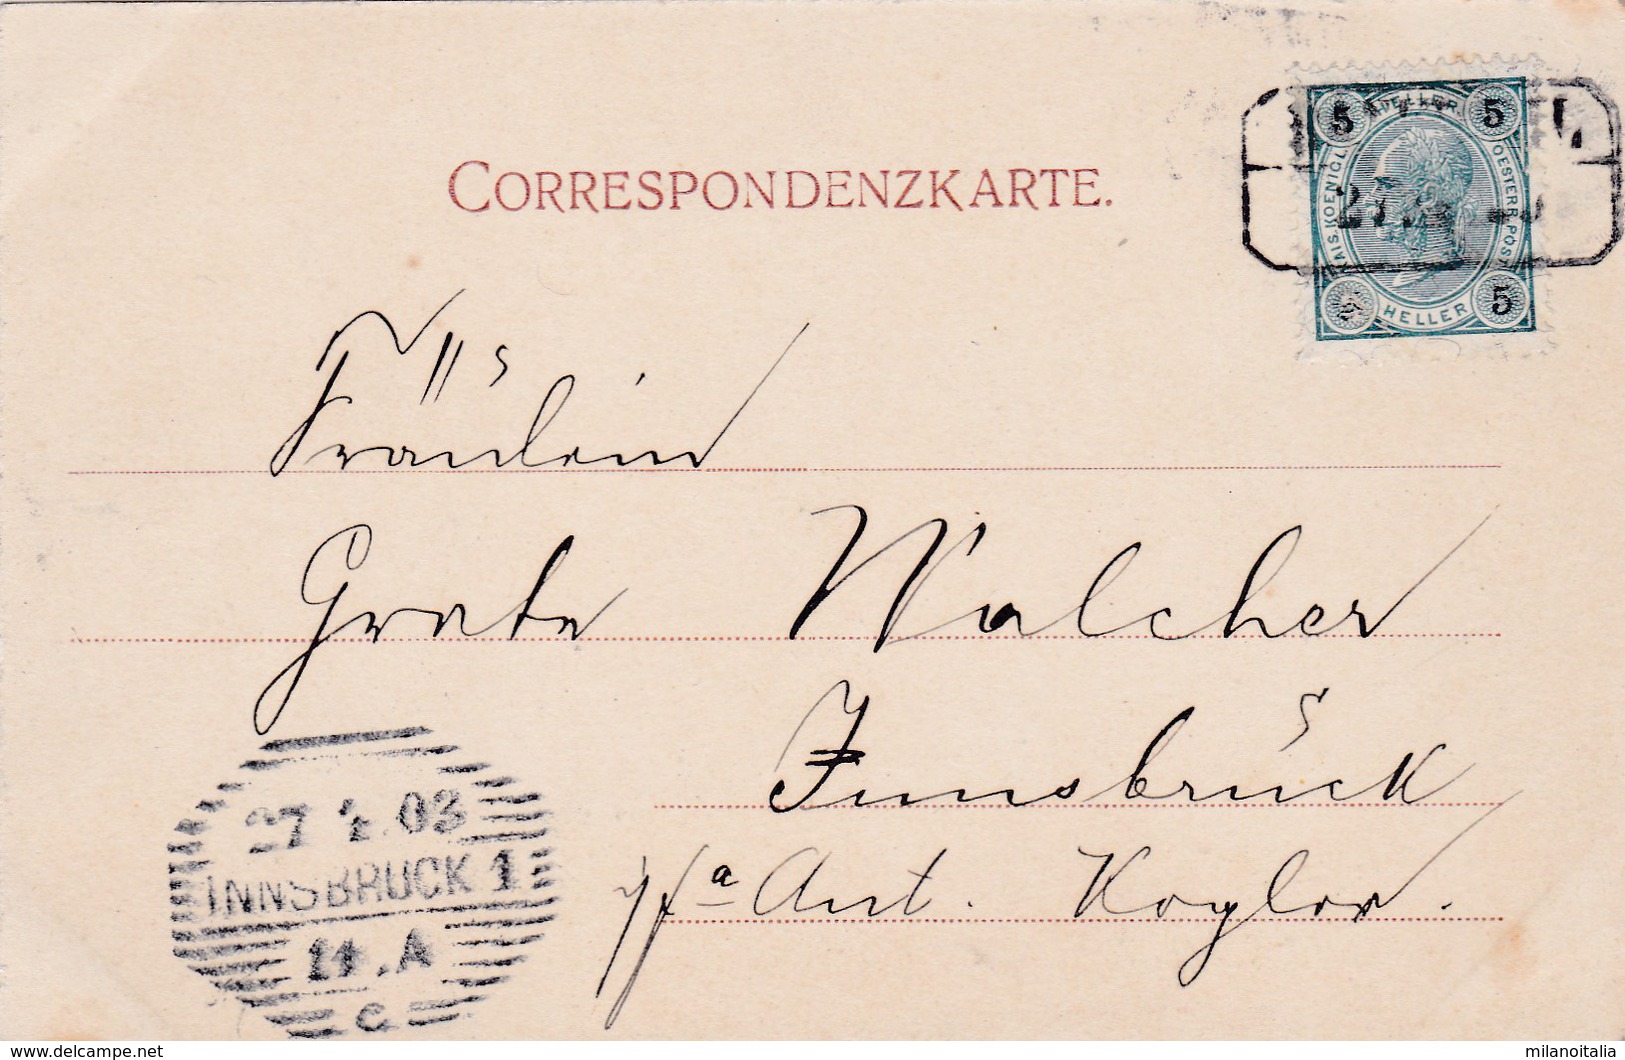 CORRESPONDENZKARTE.
5 HELLER 5
KAIS. KOENIGL. OESTERR. POST
5 HELLER 5
27
Fräulein
Grete Walcher
Innsbruck
Ant. Kogler.
27 4 03
INNSBRUCK 1
11.A
C
www.delcampe.net
milanoitalia